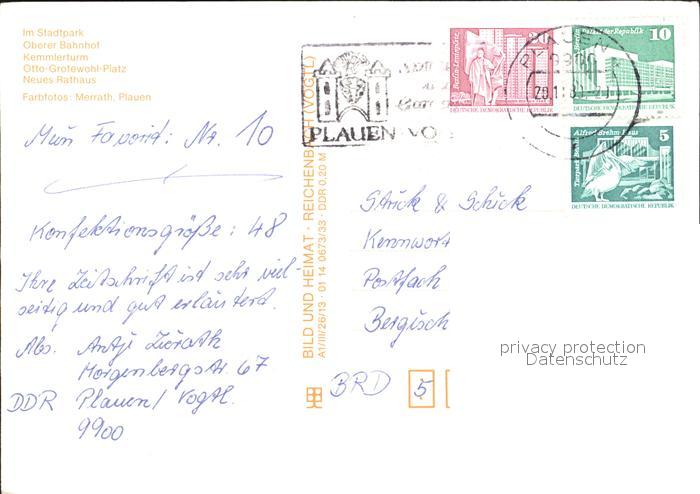 Im Stadtpark
Oberer Bahnhof
Kemmlerturm
Otto-Grotewohl-Platz
Neues Rathaus
Farbfotos: Merrath, Plauen
Mein Favorit: Nr. 10
Konfektionsgröße: 48
Ihre Zeitschrift ist sehr viel-
seitig und gut erläutert.
Abs. Antje
Morgenbergstr. 67
DDR Plauen/Vogtl.
9900
BILD UND HEIMAT · REICHENBACH (VOGTL)
A1/III/26/13 01 14 0673/33 · DDR 0,20 M
PLAUEN VO
PLAUEN
20
Berlin-Leninplatz
DEUTSCHE DEMOKRATISCHE REPUBLIK
10
Berlin, Palast der Republik
DEUTSCHE DEMOKRATISCHE REPUBLIK
5
Alfred-Brehm-Haus
Tierpark Berlin
DEUTSCHE DEMOKRATISCHE REPUBLIK
Strick & Schick
Kennwort
Postfach
Bergisch
BRD 5
privacy protection
Datenschutz